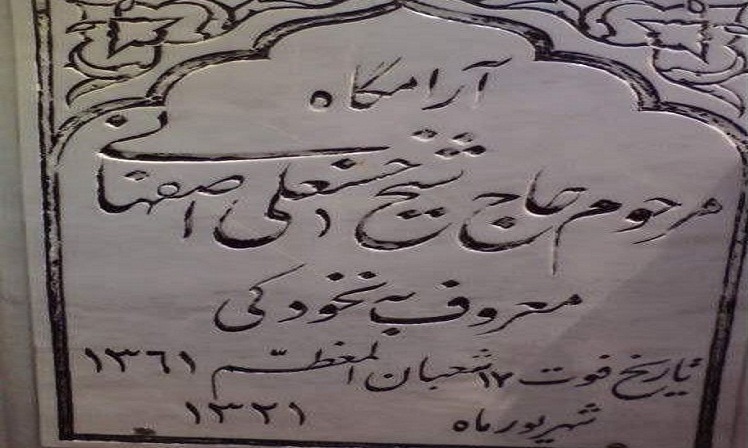 آرامگاه
مرحوم حاج شیخ حسنعلی اصفهانی
معروف به نخودکی
تاریخ فوت ۱۷ شعبان المعظم ۱۳٦۱
شهریور ماه ۱۳۲۱